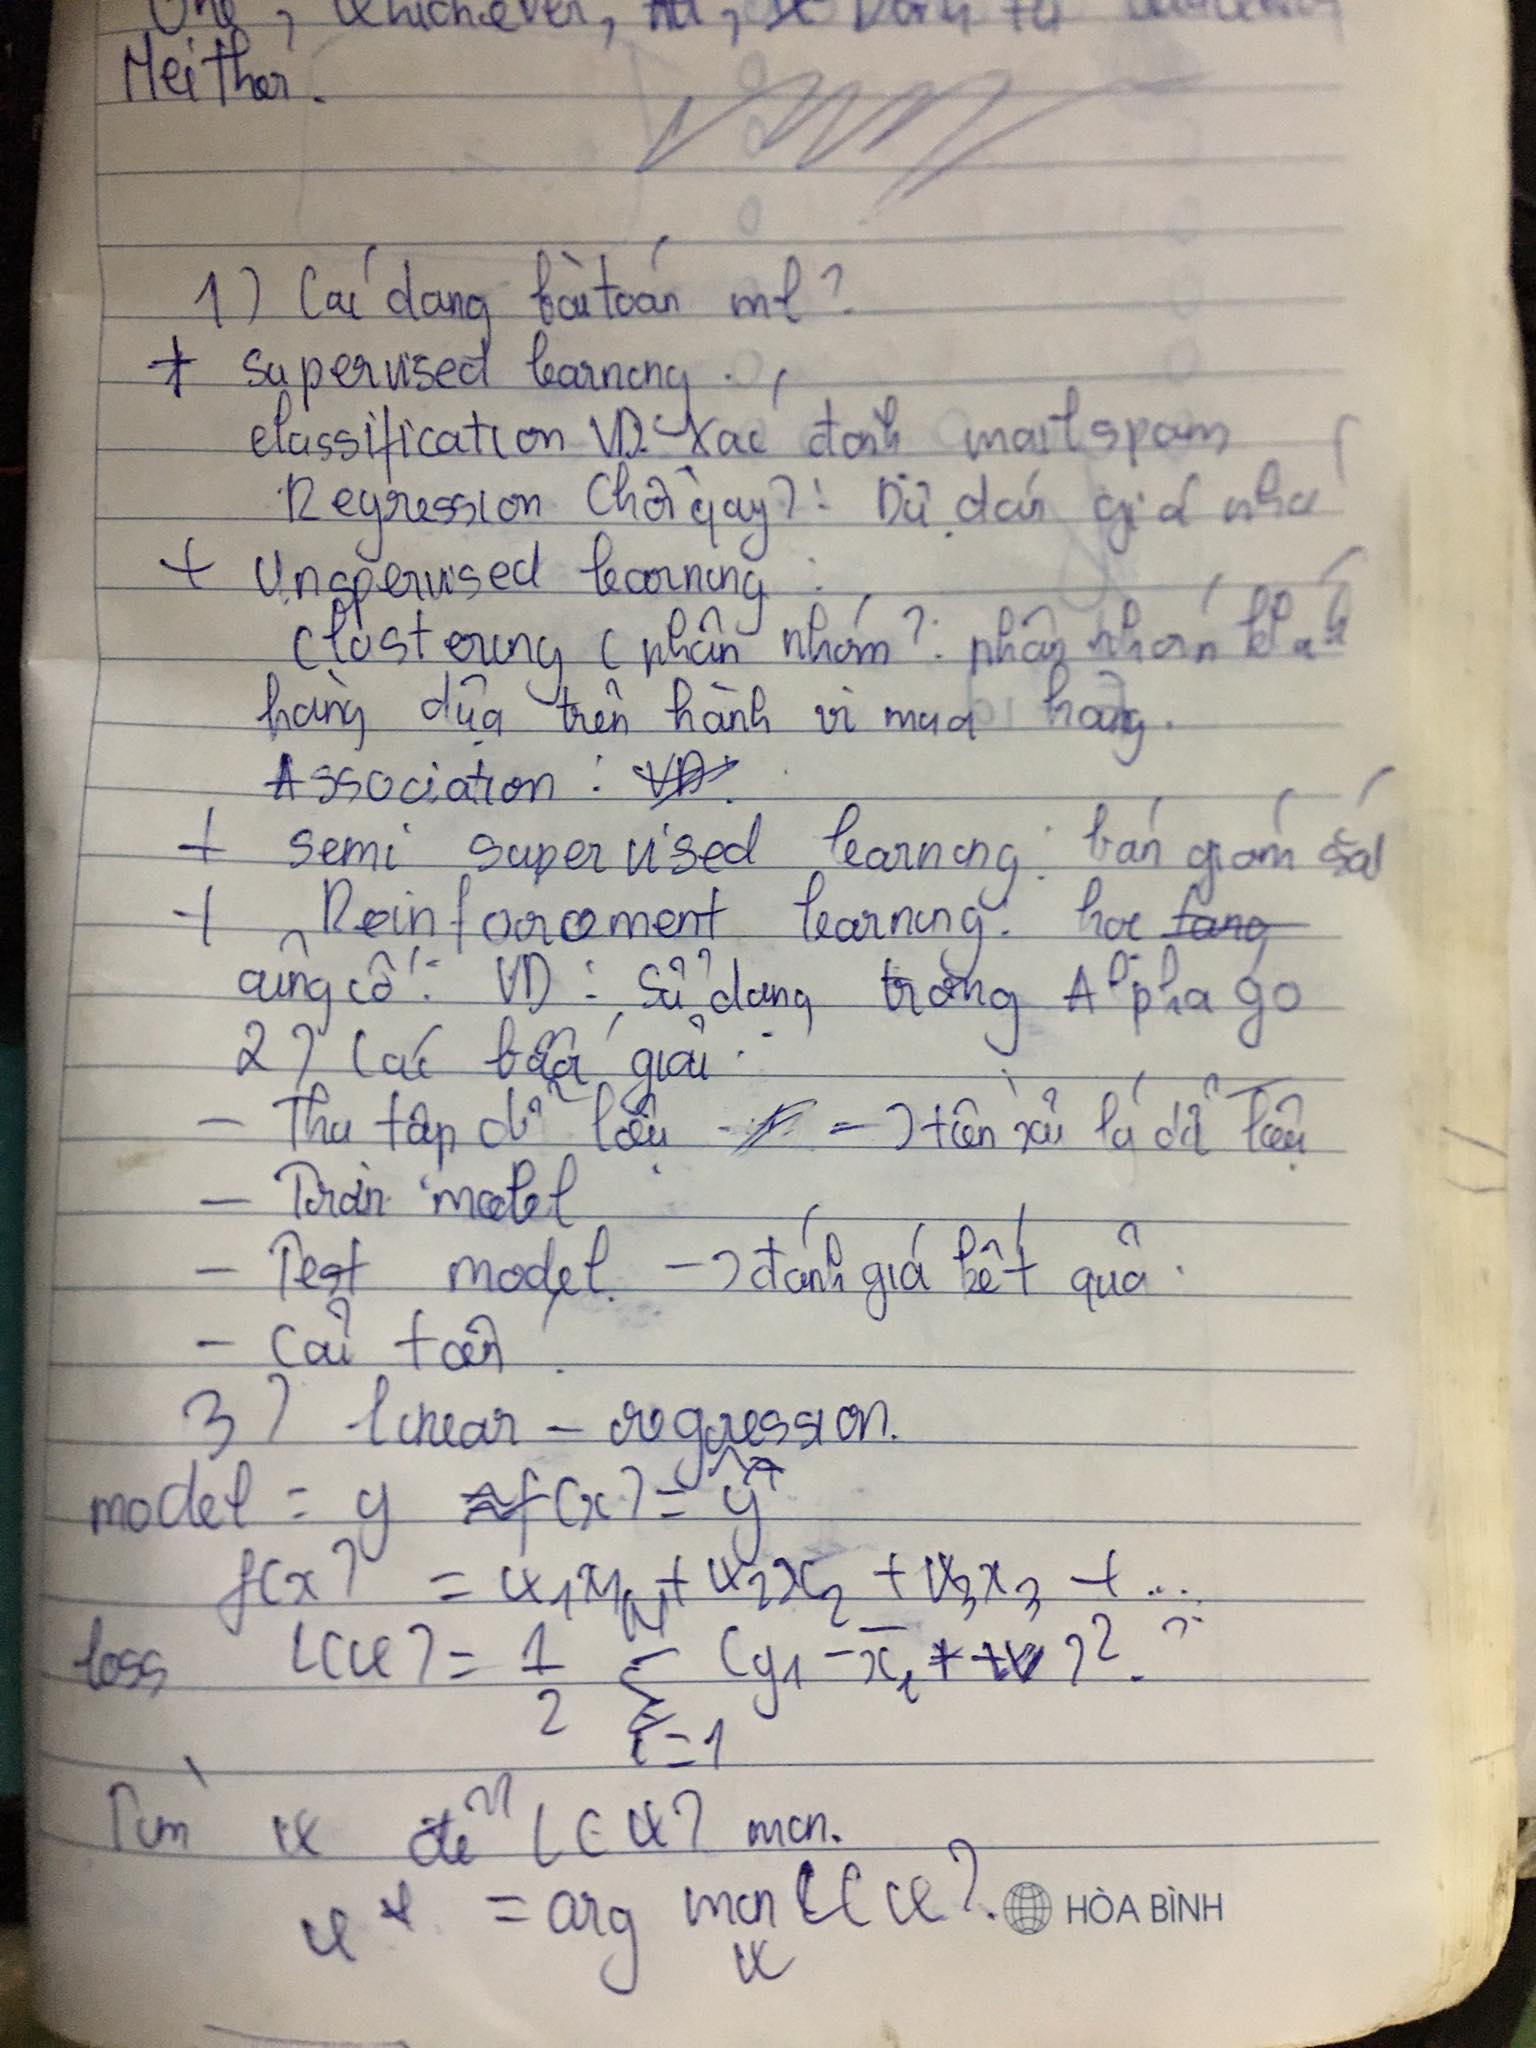 One, whichever,
Neither.
1) Các dạng bài toán ml?
+ Supervised learning.
classification VD: Xác định mail spam
Regression (hồi quy): Dự đoán giá nhà
+ Unspervised learning:
Clostering (phân nhóm): phân nhóm khách
hàng dựa trên hành vi mua hàng.
Association: VD.
+ semi supervised learning: bán giám sát
+ Reinforcement learning: học
củng cố: VD: sử dụng trong Alpha go
2) Các bước giải:
- Thu tập dữ liệu -> tiền xử lí dữ liệu
- Train model
- Test model. -> đánh giá kết quả.
- Cải tiến
3) linear - regression.
model = y ≈ f(x) = ŷ
f(x) = w1x1 + w2x2 + w3x3 + ...
loss L(w) = 1/2 N∑i=1 (y1 - x̄i * w)².
Tìm w để L(w) min.
w* = arg min L(w).
w
HÒA BÌNH